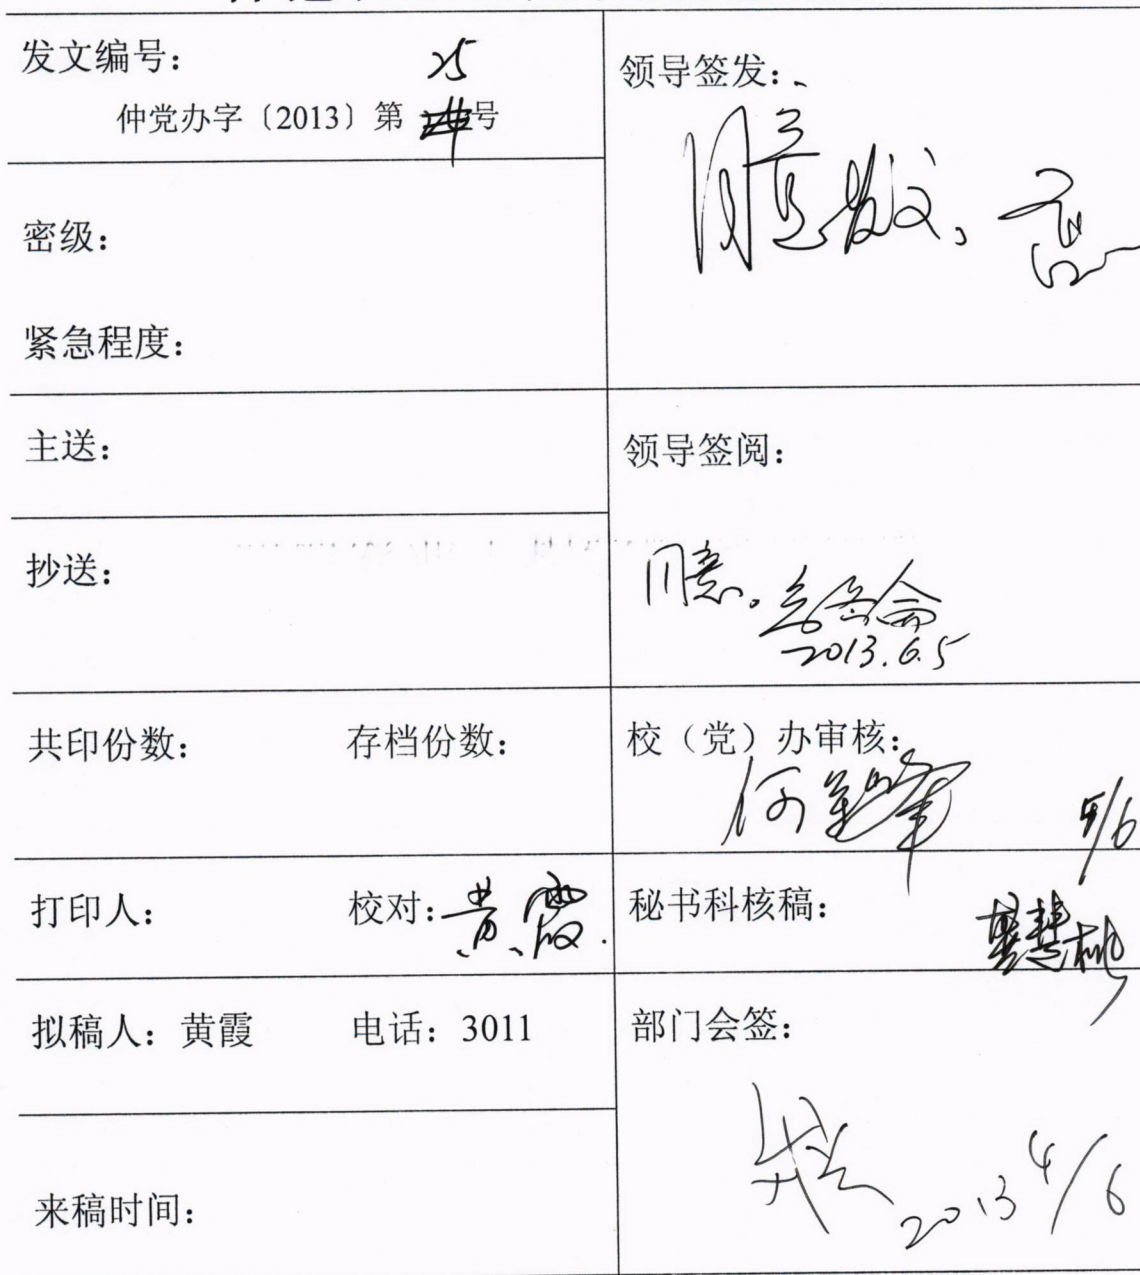 发文编号：
25
仲党办字〔2013〕第 号
密级：
紧急程度：
主送：
抄送：
共印份数： 存档份数：
打印人： 校对：黄霞.
拟稿人：黄霞 电话：3011
来稿时间：
领导签发：
同意发、
领导签阅：
同意。
2013.6.5
校（党）办审核：
5/6
秘书科核稿：
部门会签：
2013 4/6